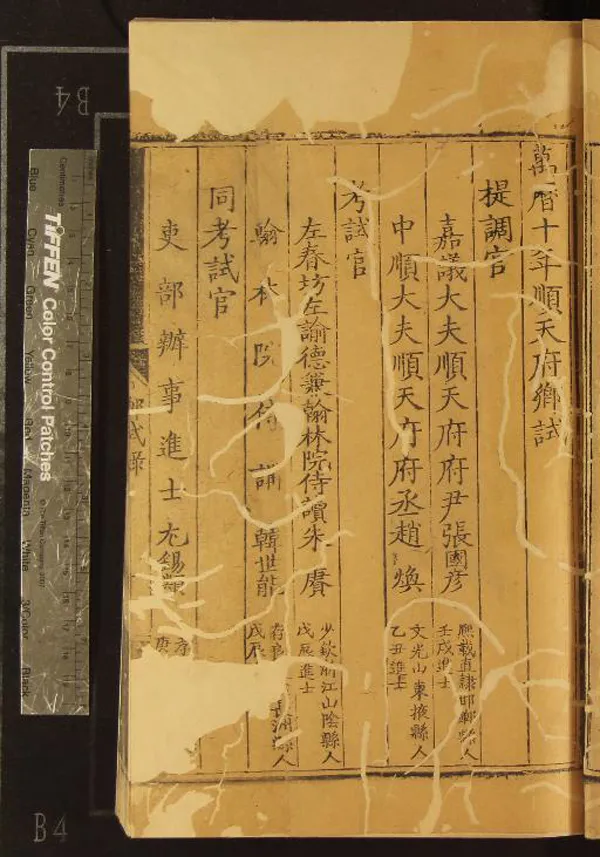 萬曆十年順天府鄉試
提調官
嘉議大夫順天府府尹張國彥
熙載直隸邯鄲縣人
壬戌進士
中順大夫順天府府丞趙煥
文光山東掖縣人
乙丑進士
考試官
左春坊左諭德兼翰林院侍讀朱賡
少欽浙江山陰縣人
戊辰進士
翰林院侍講韓世能
存良
縣人
戊辰
同考試官
吏部辦事進士尤錫類
庚
試錄
B4
B4
Centimetres
TIFFEN Color Control Patches
Blue
Cyan
Green
Yellow
Red
Magenta
White
3/Color
Black